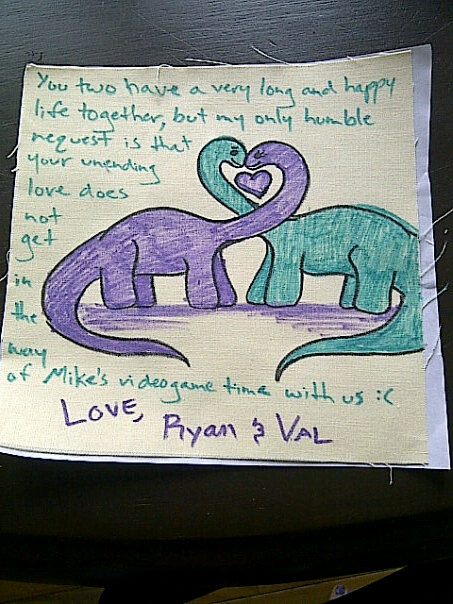 You two have a very long and happy
life together, but my only humble
request is that
your unending
love does
not
get
in
the
way
of Mike's videogame time with us :(
LOVE, Ryan & VAL